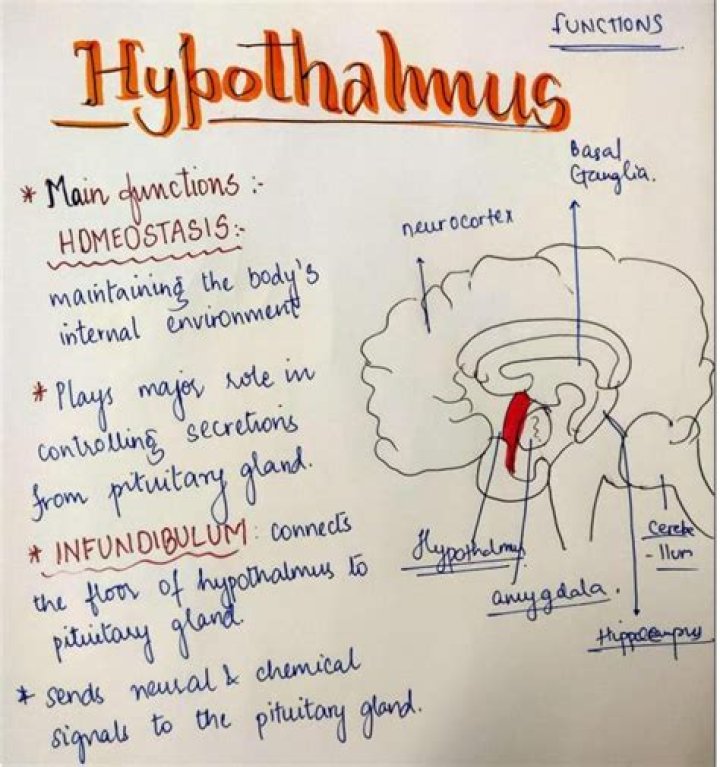 FUNCTIONS
Hypothalmus
* Main functions :-
HOMEOSTASIS:-
maintaining the body's
internal environment
* Plays major role in
controlling secretions
from pituitary gland.
* INFUNDIBULUM : connects
the floor of hypothalmus to
pituitary gland.
* sends neural & chemical
signals to the pituitary gland.
Basal
Ganglia.
neurocortex
Hypothalmus
amygdala.
Cerebe
- llum
Hippocampus